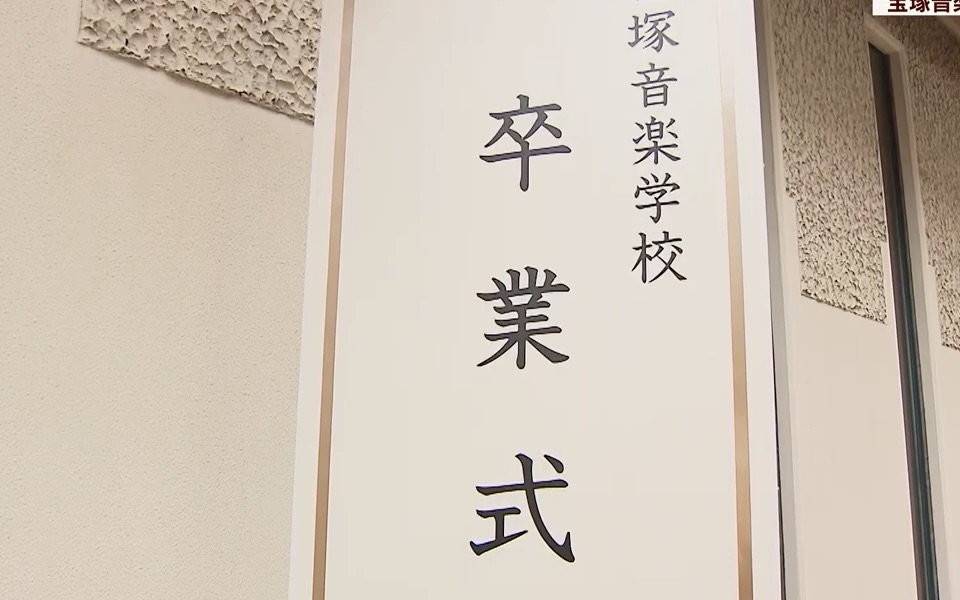 塚音楽学校
卒業式
宝塚音楽